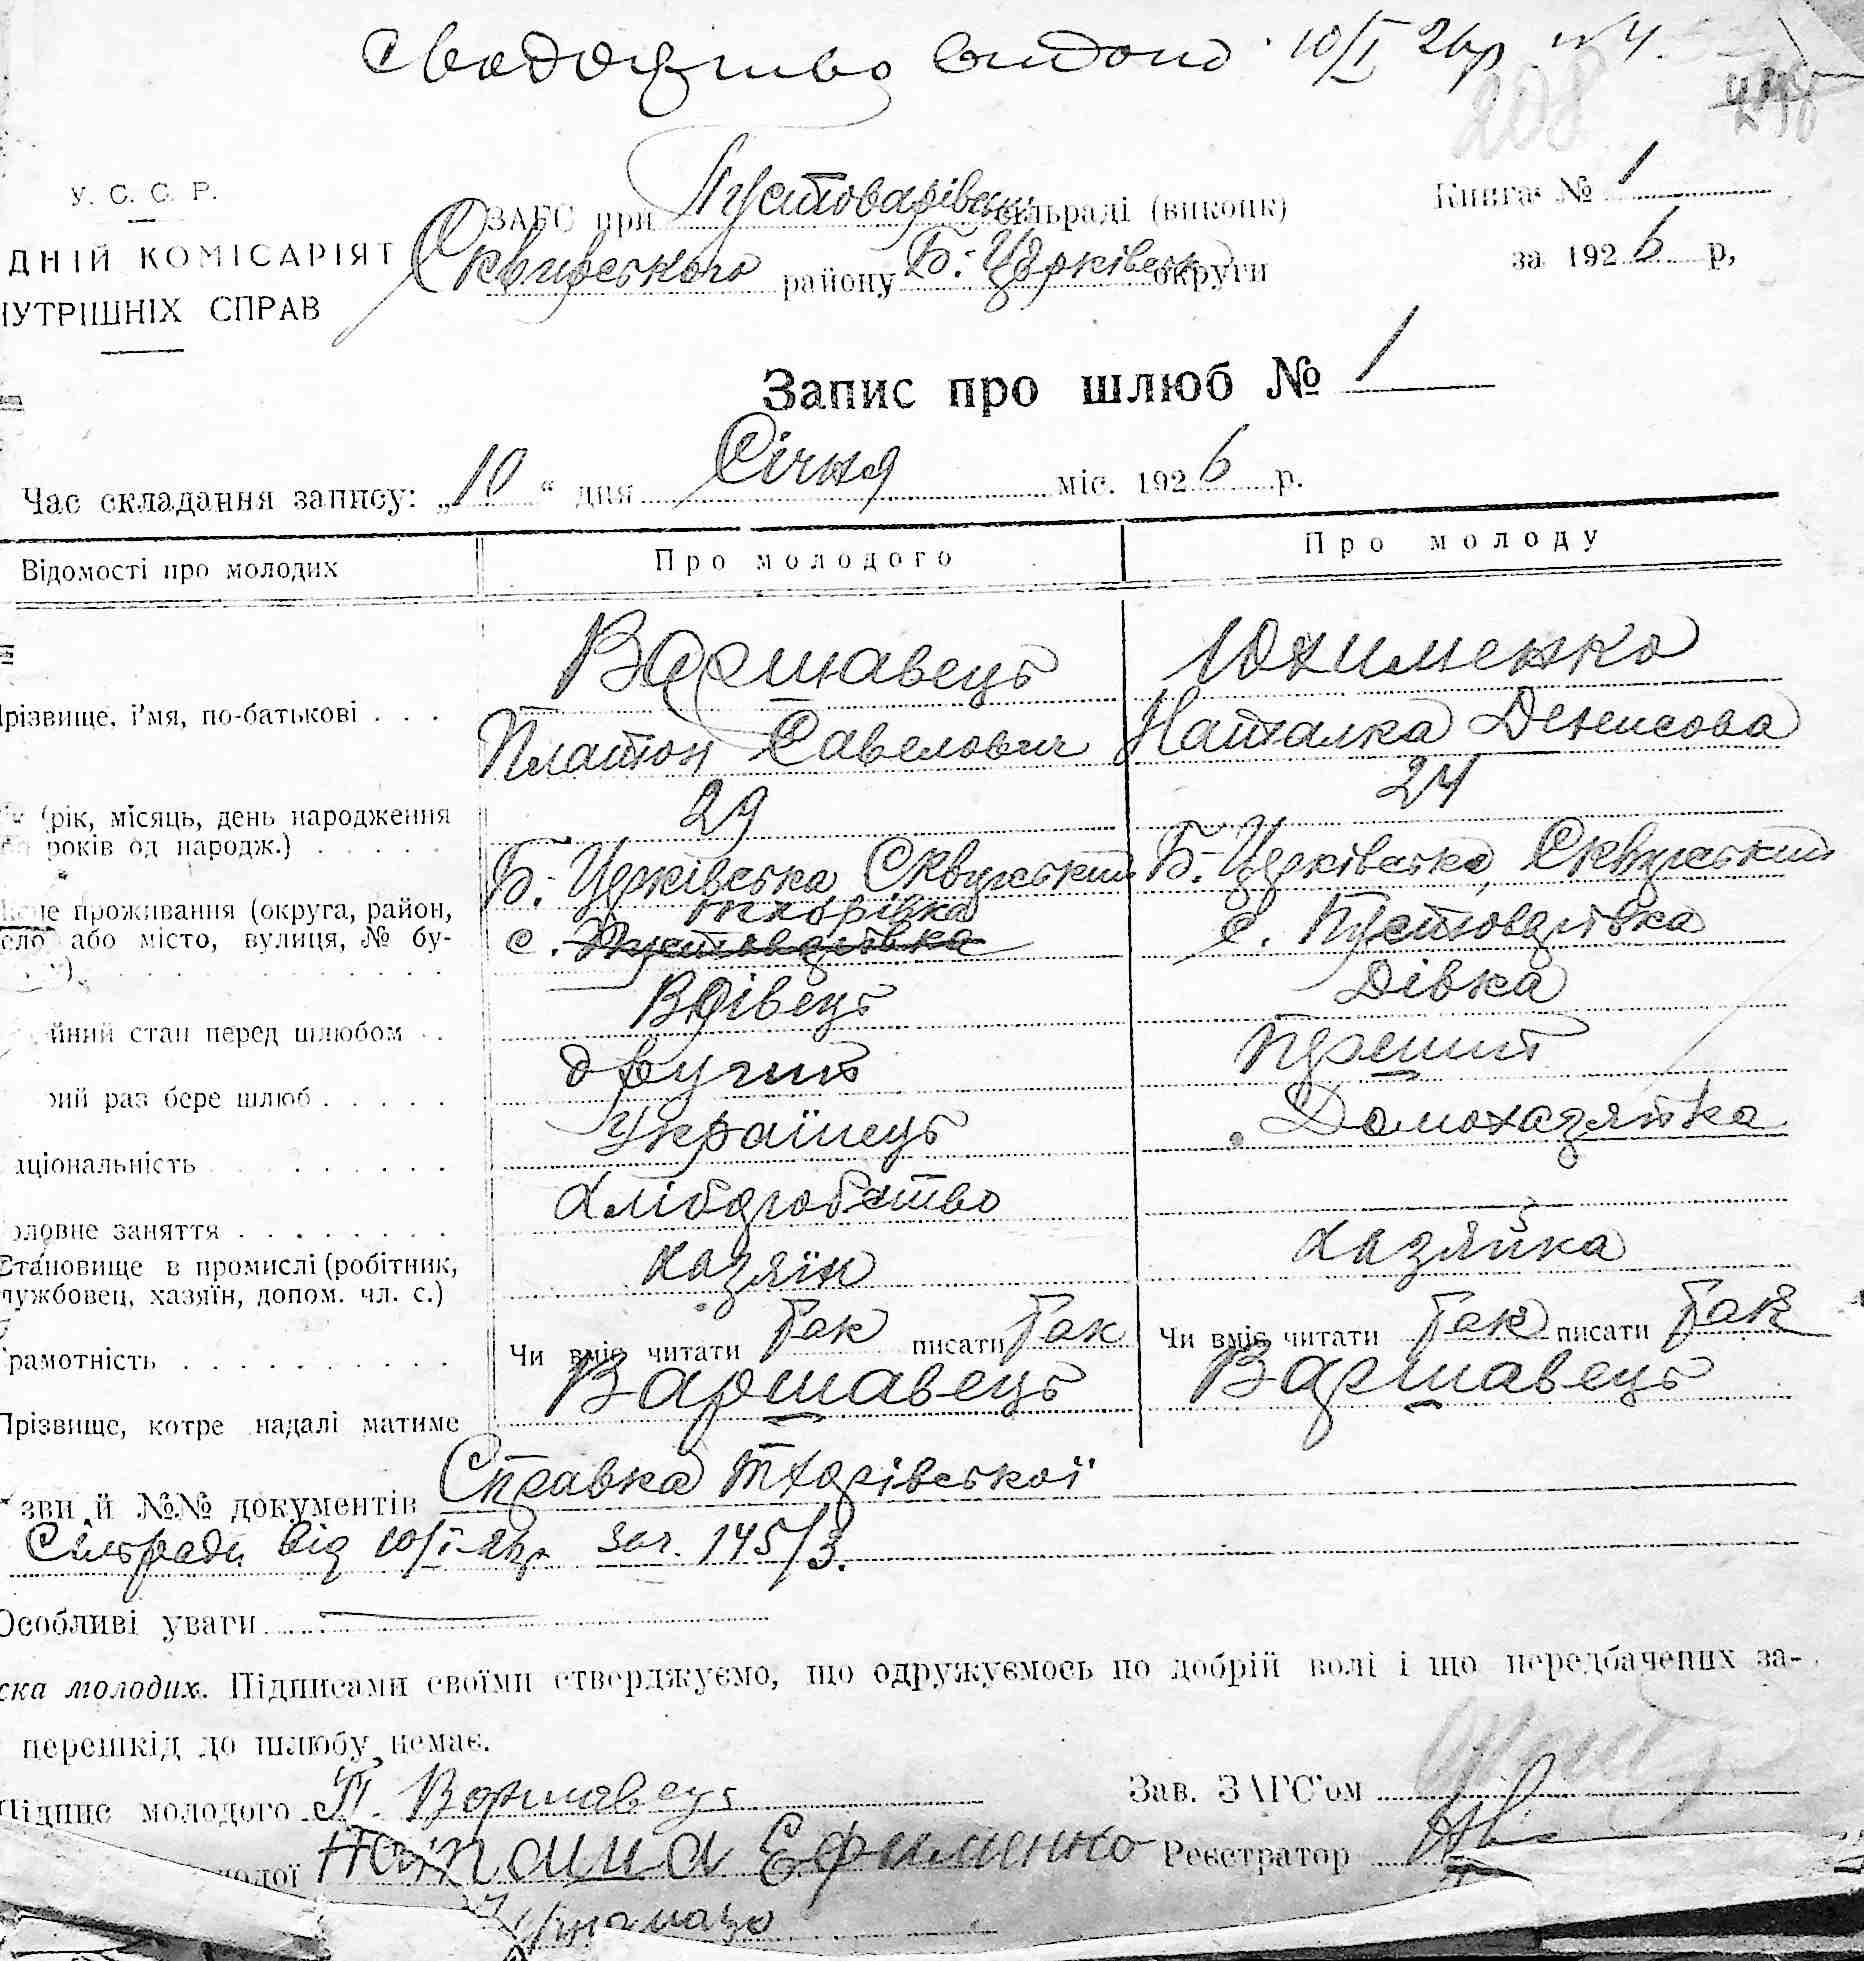 Свадоцтво видано 10/I 26р №4.
208
У. С. С. Р.
ЗАГС при Пустоварівськ сільраді (виконк)
Книга № 1
ДНІЙ КОМІСАРІЯТ
Сквирського району Б: Церківськ округи
за 1926 р,
НУТРІШНІХ СПРАВ
Запис про шлюб № 1
Час складання запису: „10“ дня Січня міс. 1926 р.
Відомості про молодих
Про молодого
Про молоду
Варшавець
Юхименко
Прізвище, і'мя, по-батькові . . .
Платон Савелович
Наталка Денисова
(рік, місяць, день народження
років од народж.) . . . . .
29
24
Б. Церківська Сквирський
Б. Церківська, Сквирський
проживання (округа, район,
Тхорівка
село або місто, вулиця, № бу-
с. Пустоварівка
с. Пустоварівка
Вдівець
Дівка
йний стан перед шлюбом . .
другий
Перший
рий раз бере шлюб . . . . .
Українець
Домохазяйка
аціональність . . . . . . . . .
Хліборобство
оловне заняття . . . . . . . .
Становище в промислі (робітник,
службовец, хазяїн, допом. чл. с.)
хазяїн
хазяйка
рамотність . . . . . . . . . .
Чи вміє читати Так писати Так
Чи вміє читати Так писати Так
Прізвище, котре надалі матиме
Варшавець
Варшавець
зви й №№ документів Справка Тхорівської
Сільради від 10/I-26р зач. 145/3.
Особливі уваги
ска молодих. Підписами своїми стверджуємо, що одружуємось по добрій волі і що передбачених за-
перешкід до шлюбу немає.
Підпис молодого П. Варшавець
Зав. ЗАГС'ом
лодої Наталиа Ефименко
Реєстратор